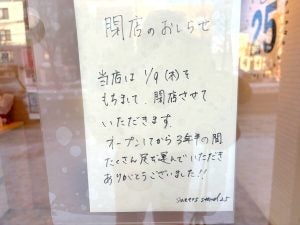 閉店のおしらせ
当店は 1/9 (木)を
もちまして、閉店させて
いただきます。
オープンしてから3年半の間
たくさん足を運んでいただき
ありがとうございました!!
25